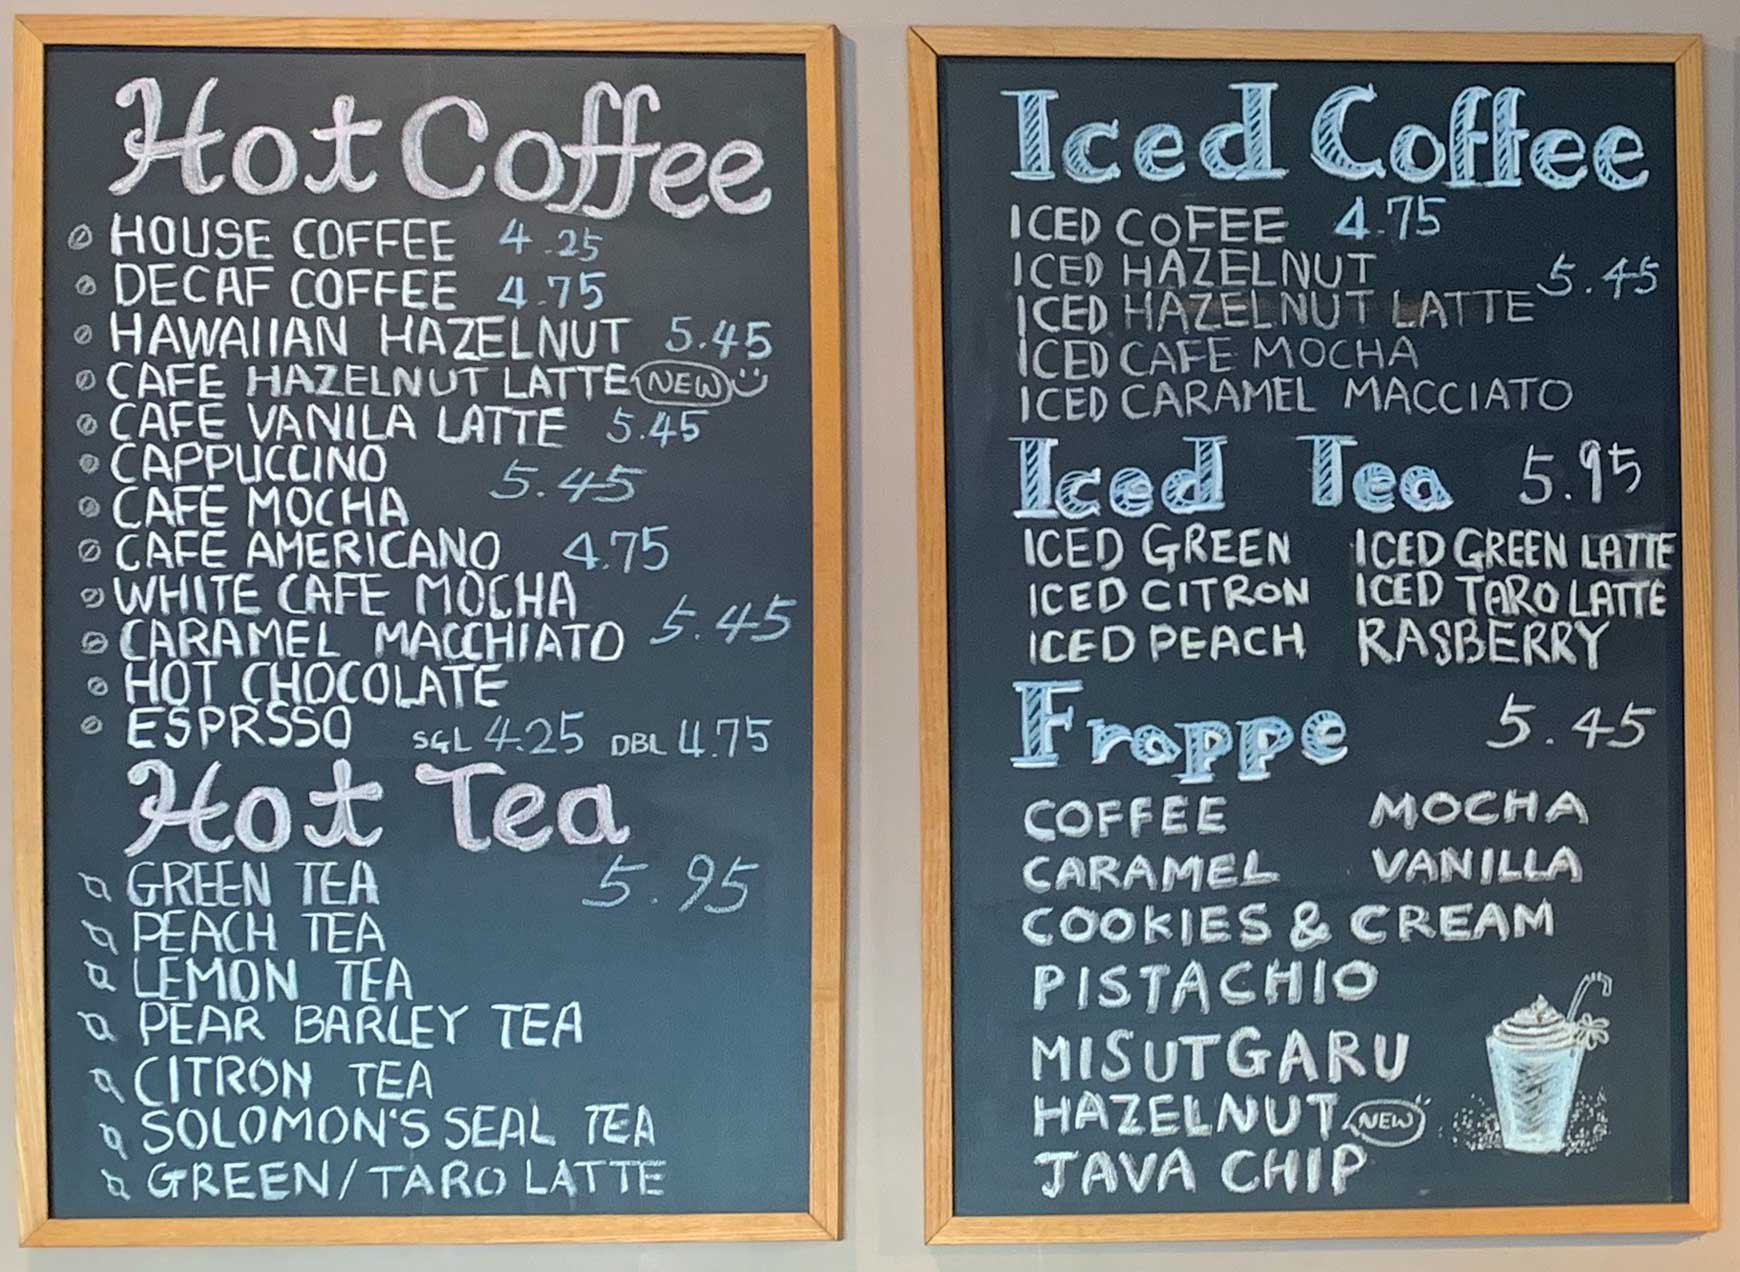 Hot Coffee
HOUSE COFFEE 4.25
DECAF COFFEE 4.75
HAWAIIAN HAZELNUT 5.45
CAFE HAZELNUT LATTE NEW
CAFE VANILA LATTE 5.45
CAPPUCCINO
5.45
CAFE MOCHA
CAFE AMERICANO 4.75
WHITE CAFE MOCHA
5.45
CARAMEL MACCHIATO
HOT CHOCOLATE
ESPRSSO SGL 4.25 DBL 4.75
Hot Tea
GREEN TEA 5.95
PEACH TEA
LEMON TEA
PEAR BARLEY TEA
CITRON TEA
SOLOMON'S SEAL TEA
GREEN/TARO LATTE
Iced Coffee
ICED COFEE 4.75
ICED HAZELNUT 5.45
ICED HAZELNUT LATTE
ICED CAFE MOCHA
ICED CARAMEL MACCIATO
Iced Tea 5.95
ICED GREEN ICED GREEN LATTE
ICED CITRON ICED TARO LATTE
ICED PEACH RASBERRY
Frappe 5.45
COFFEE MOCHA
CARAMEL VANILLA
COOKIES & CREAM
PISTACHIO
MISUTGARU
HAZELNUT NEW
JAVA CHIP